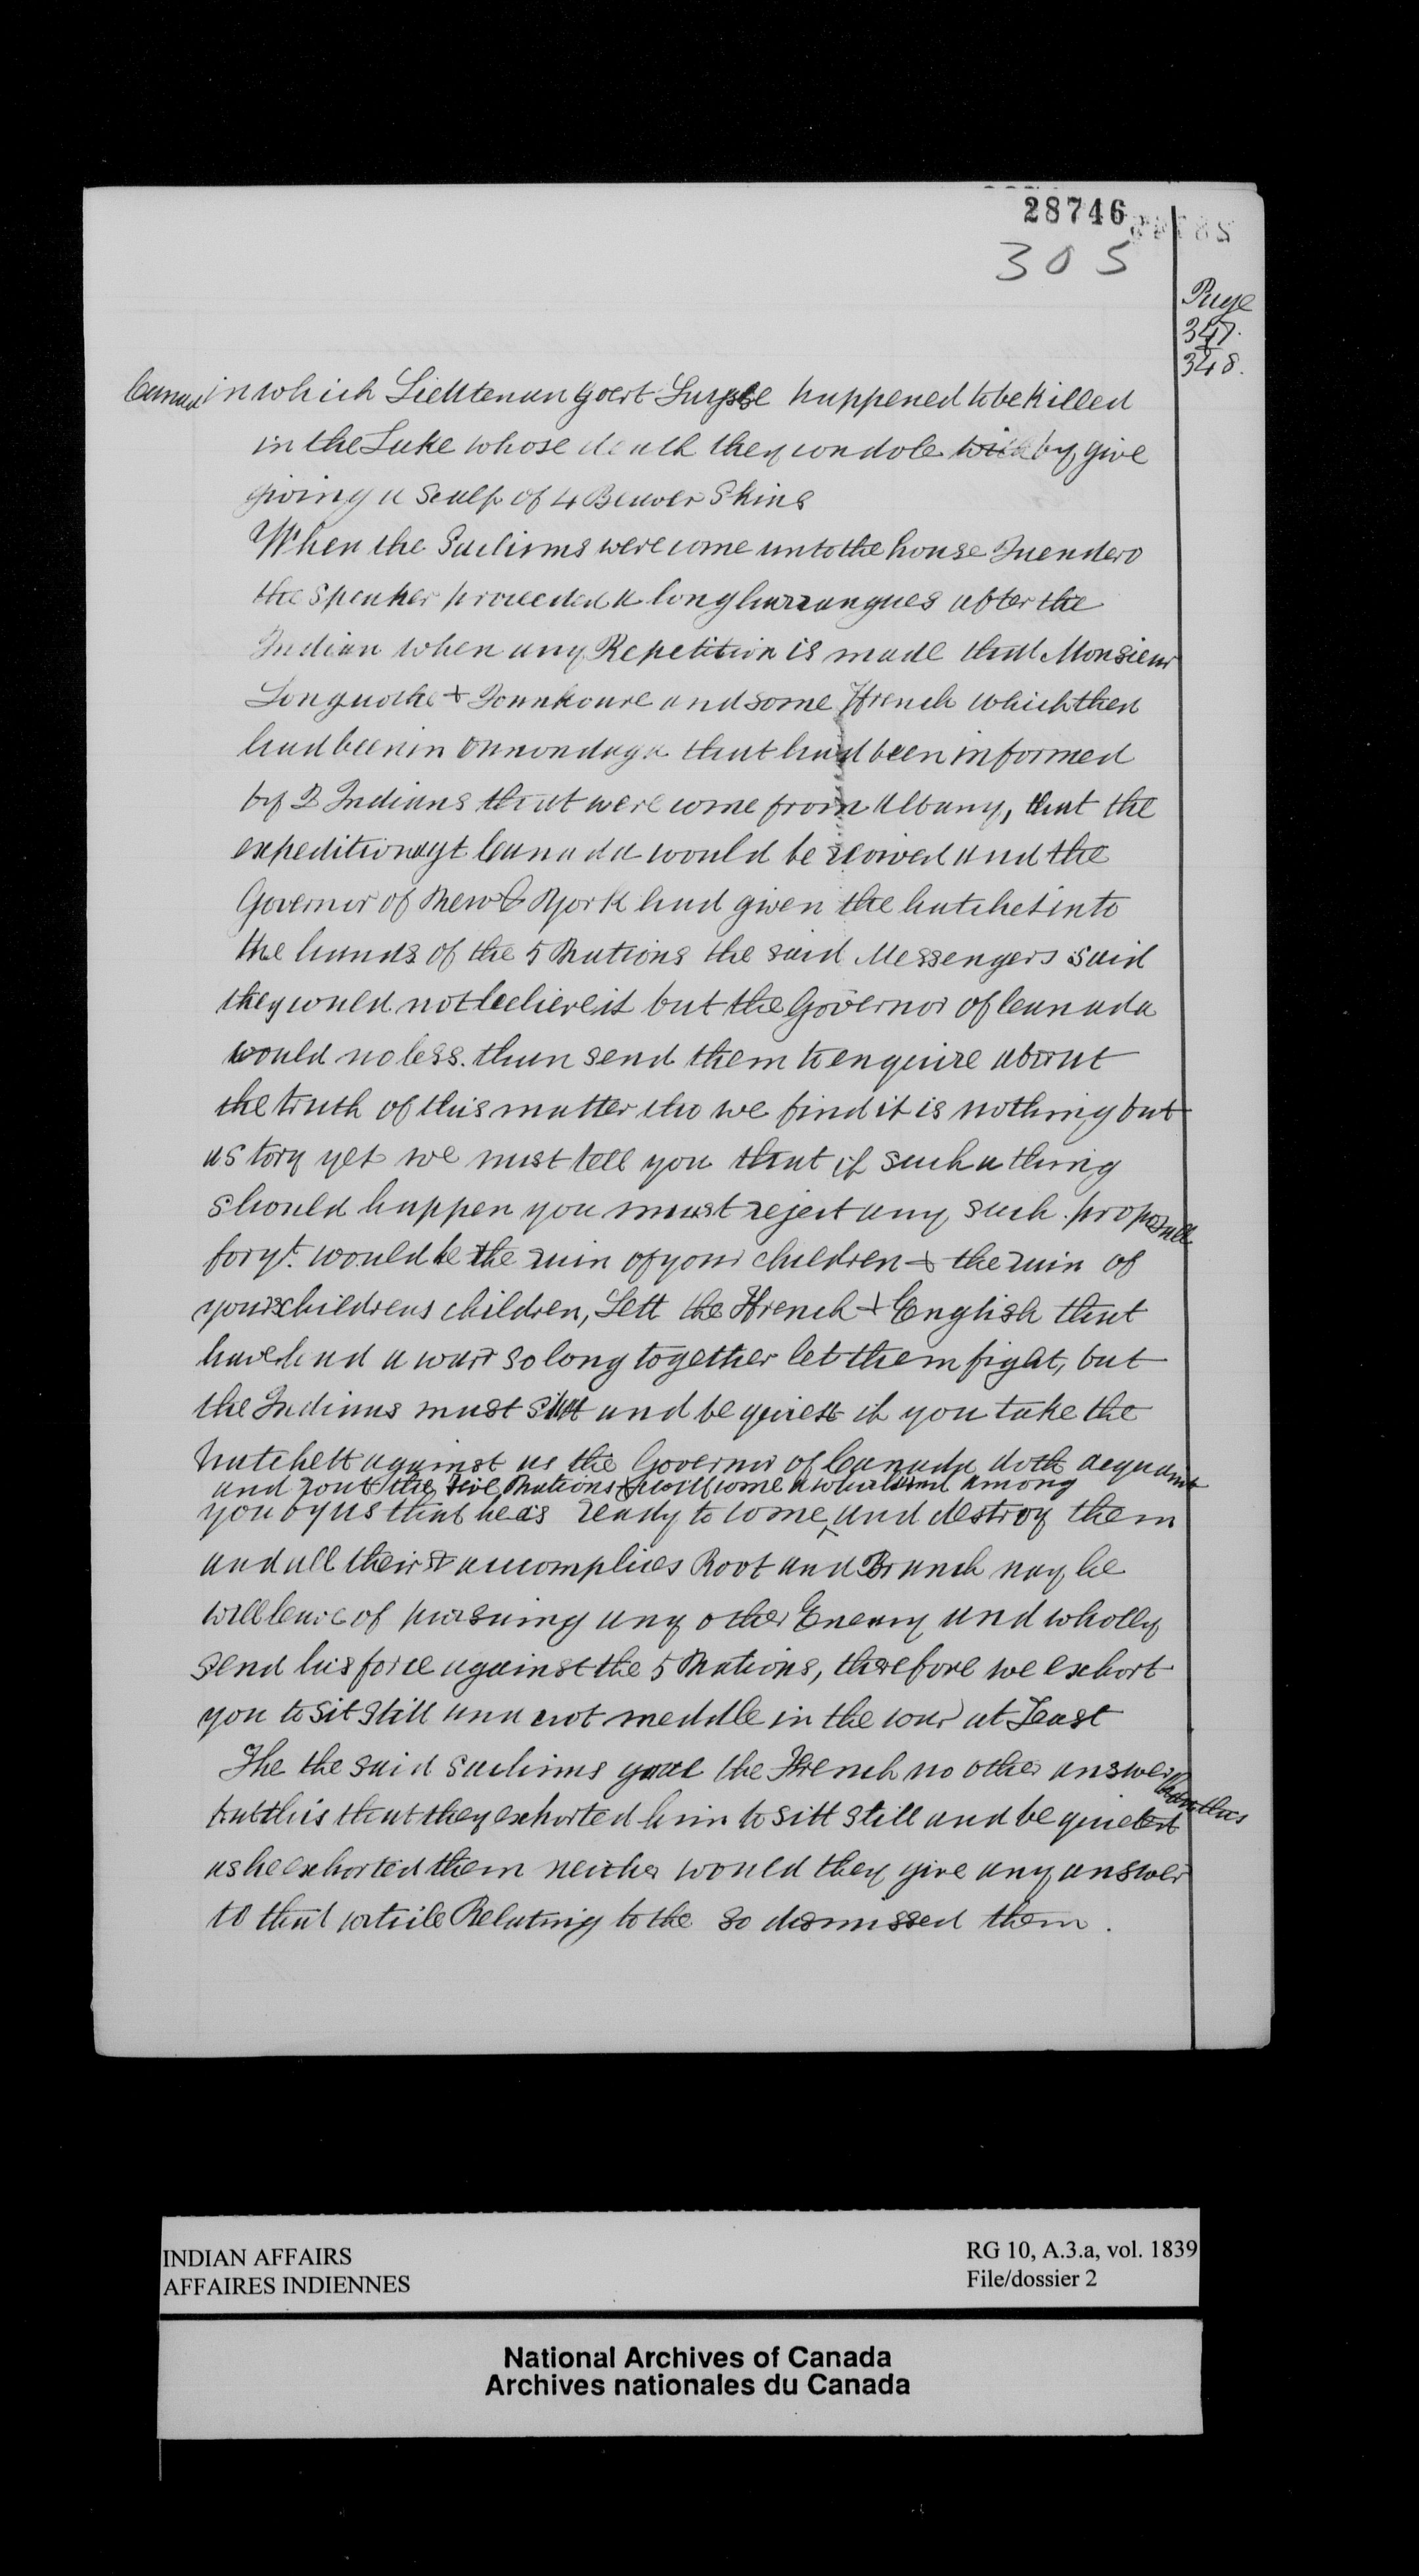 28746
305
Page
347.
348.
Canad in which Lieutenan goert Surpse happened to be killed
in the Lake whose death they condole by give
giving a Scalp of 4 Beaver Skins
When the Sachims were come unto the house Tuendero
the Speaker proceeded a long harrangues after the
Indian when any Repetition is made that Monsieur
Longuoche & Jounkoure and some French which then
had been in onnondaga that had been informed
by 2 Indians that were come from Albany, that the
expedition agt Canada would be and the
Governor of New York had given the hatchet into
the hands of the 5 Nations the said Messengers said
they would not believe it but the Governor of Canada
would no less. than send them to enquire about
the truth of this matter tho we find it is nothing but
a story yet we must tell you that if such a thing
should happen you must reject any such. proposall
for yt. would be the ruin of your children & the ruin of
your childrens children, Lett the French & English that
have had a warr so long together let them fight, but
the Indians must sitt and be quiett if you take the
hatchett against us the Governor of Canada doth acquaint
and rout the five Nations & will come a whirlwind among
you by us that he is ready to come, and destroy them
and all their accomplices Root and Branch nay he
will leave of pursuing any other Enemy and wholly
send his force against the 5 Nations, therefore we exhort
you to sit still and not meddle in the war at Least
The the said Sachims gave the French no other answer than this
but this that they exhorted him to sitt still and be quieted
as he exhorted them neither would they give any answer
to that article Relating to the so dismissed them.
INDIAN AFFAIRS
AFFAIRES INDIENNES
RG 10, A.3.a, vol. 1839
File/dossier 2
National Archives of Canada
Archives nationales du Canada